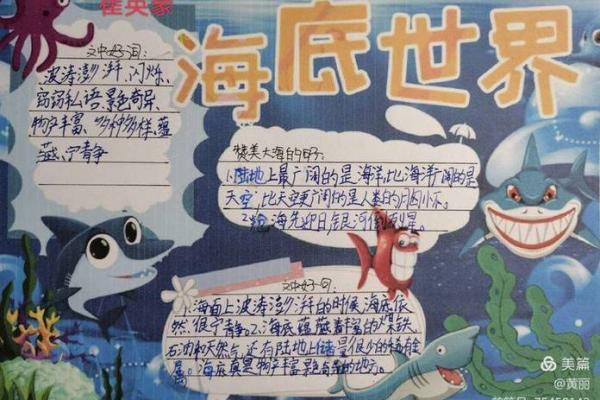 崔英豪
海底世界
文中好词:
波涛澎湃、闪烁、
窃窃私语、景色奇异、
物产丰富、多种多样、蕴
藏、宁静
赞美大海的好句:
1.陆地上最广阔的是海洋,比海洋广阔的是
天空,比天空更广阔的是人类的
2.沧海先迎日,银河倒列星。
文中好句:
1.海面上波涛澎湃的时候,海底依
然很宁静。2.海底蕴藏着丰富的煤、铁、
石油和天然气,还有陆地上储量很少的稀有金
属。海底真是物产丰富、景色奇异的地方。
美篇
@黄丽